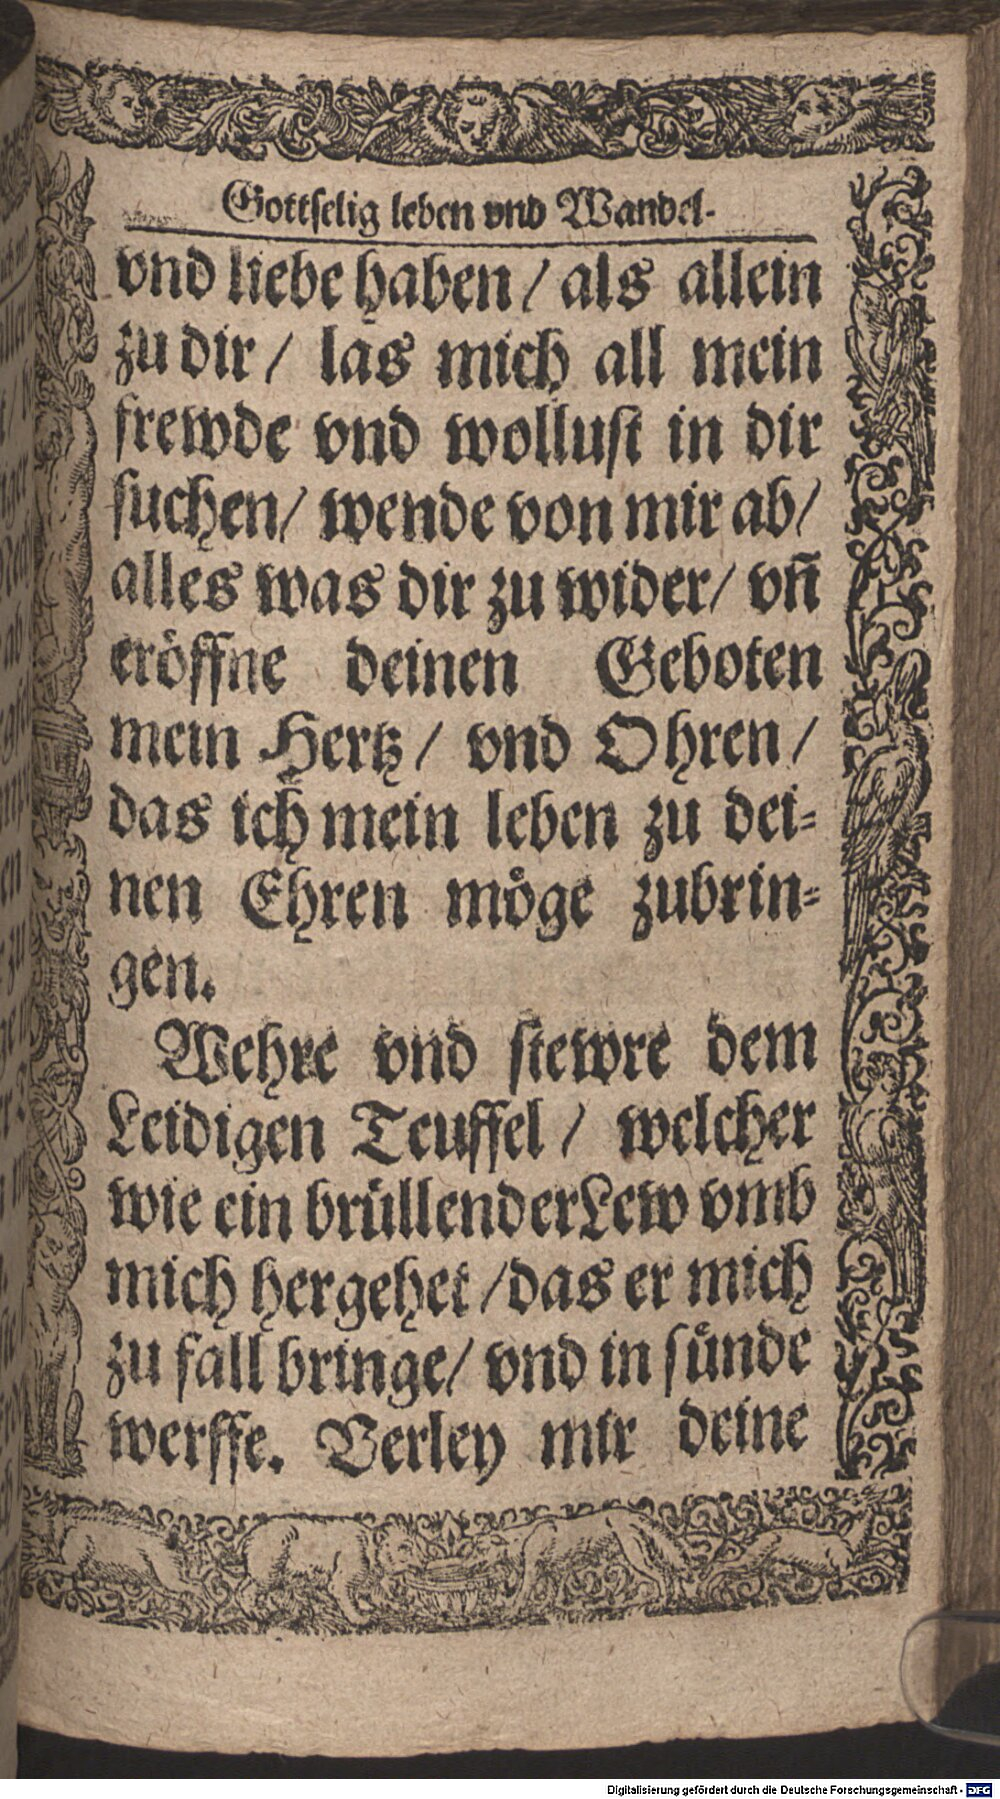 Gottselig leben vnd Wandel.
vnd liebe haben / als allein
zu dir / las mich all mein
frewde vnd wollust in dir
suchen / wende von mir ab /
alles was dir zu wider / vn̄
eröffne deinen Geboten
mein Hertz / vnd Ohren /
das ich mein leben zu dei-
nen Ehren möge zubrin-
gen.
Wehre vnd stewre dem
Leidigen Teuffel / welcher
wie ein brüllender Lew vmb
mich hergehet / das er mich
zu fall bringe / vnd in sünde
werffe. Verley mir deine
Digitalisierung gefördert durch die Deutsche Forschungsgemeinschaft - DFG